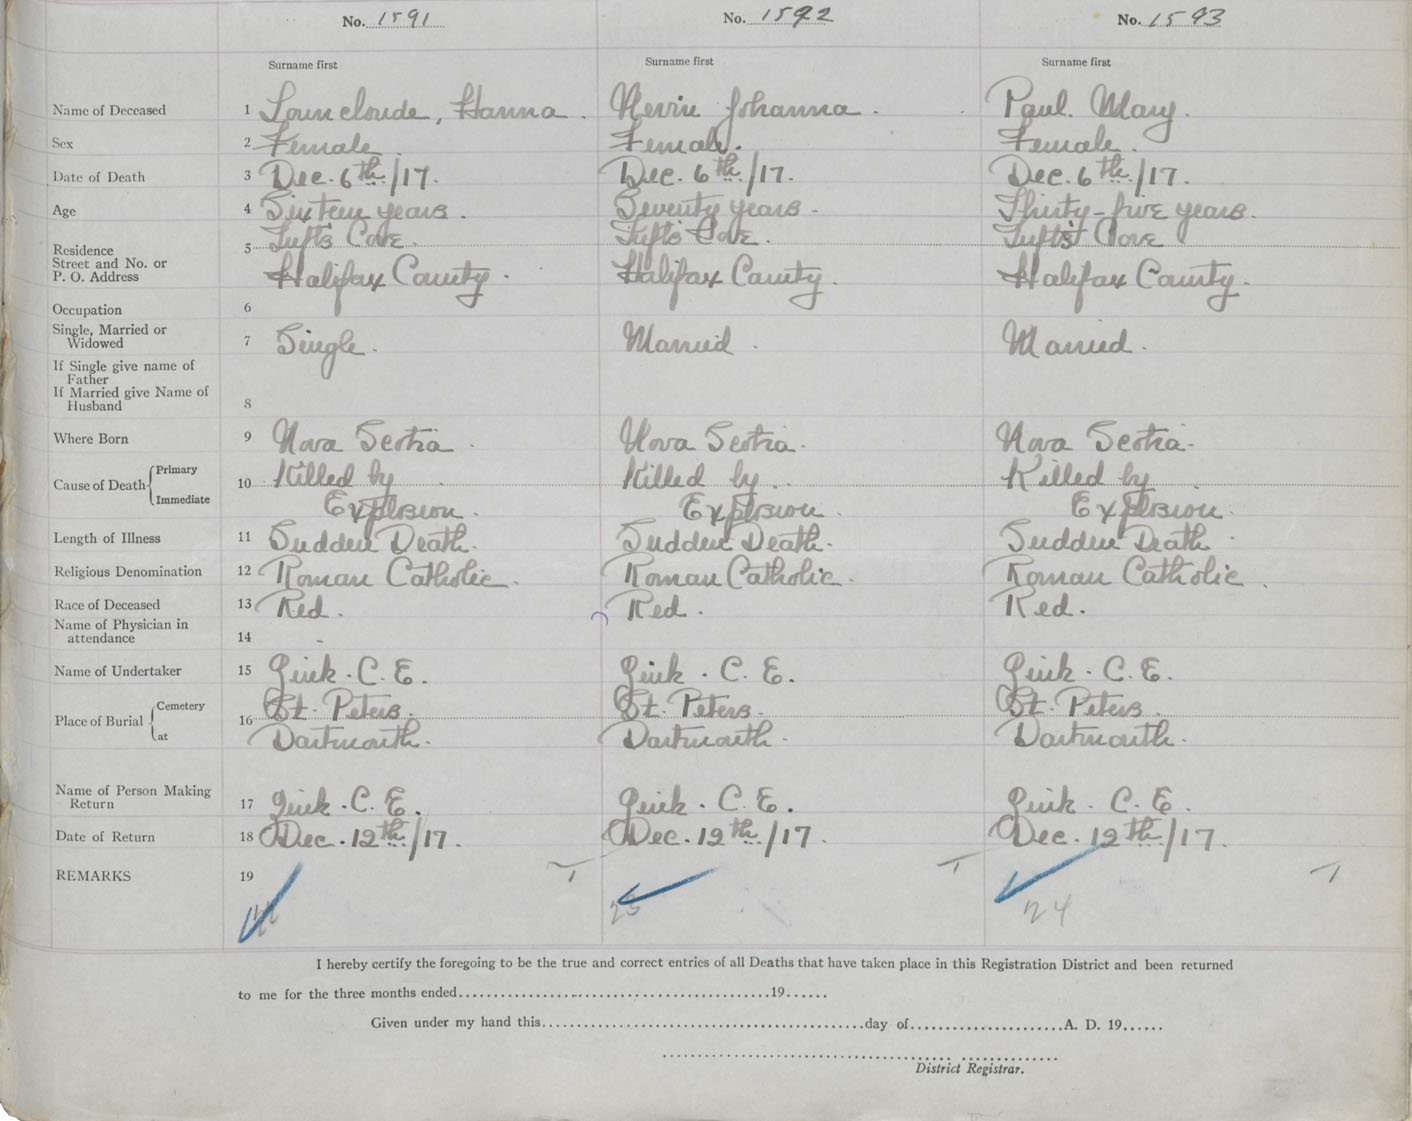 No. 1591 No. 1592 No. 1593
Surname first Surname first Surname first
Name of Deceased 1 Louncloude, Hanna. Nevin Johanna. Paul. Mary.
Sex 2 Female. Female. Female.
Date of Death 3 Dec. 6th/17. Dec. 6th/17. Dec. 6th/17.
Age 4 Sixteen years. Seventy years. Thirty-five years.
Residence 5 Tufts Cove. Tufts Cove. Tufts Cove
Street and No. or
P. O. Address Halifax County. Halifax County. Halifax County.
Occupation 6
Single, Married or
Widowed 7 Single. Married. Married.
If Single give name of
Father
If Married give Name of
Husband 8
Where Born 9 Nova Scotia. Nova Scotia. Nova Scotia.
Cause of Death { Primary 10 Killed by Killed by Killed by
Immediate Explosion. Explosion. Explosion.
Length of Illness 11 Sudden Death. Sudden Death. Sudden Death.
Religious Denomination 12 Roman Catholic. Roman Catholic. Roman Catholic.
Race of Deceased 13 Red. Red. Red.
Name of Physician in
attendance 14 -
Name of Undertaker 15 C. E. C. E. C. E.
Place of Burial { Cemetery 16 St. Peters. St. Peters. St. Peters.
at Dartmouth. Dartmouth. Dartmouth.
Name of Person Making
Return 17 C. E. C. E. C. E.
Date of Return 18 Dec. 12th/17. Dec. 12th/17. Dec. 12th/17.
REMARKS 19
24
I hereby certify the foregoing to be the true and correct entries of all Deaths that have taken place in this Registration District and been returned
to me for the three months ended 19......
Given under my hand this day of A. D. 19......
District Registrar.